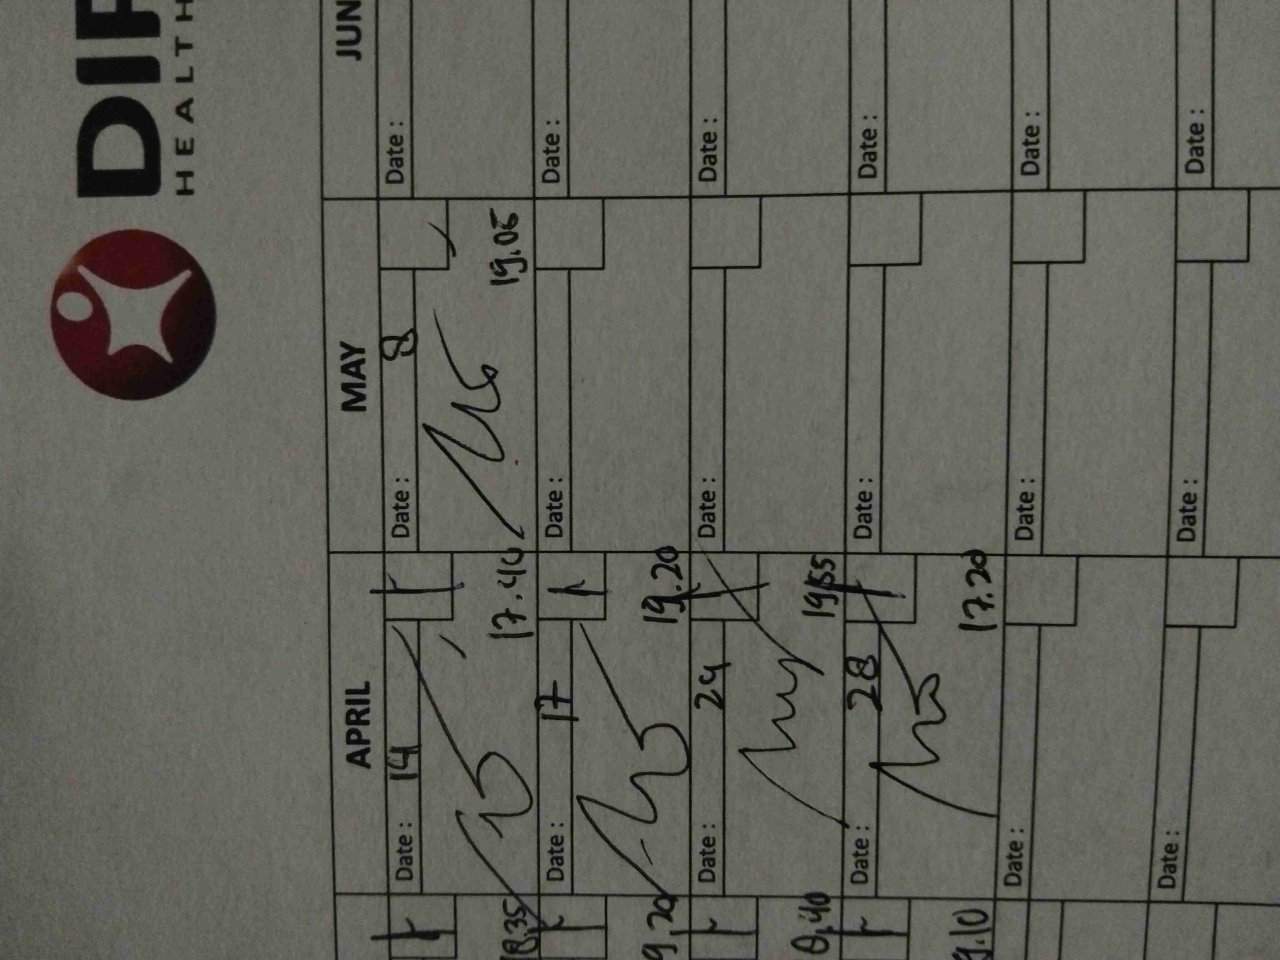 DIR
HEALTH
APRIL
MAY
JUN
Date : 14
Date : 8
Date :
17.40
19.05
Date : 17
Date :
Date :
19.20
Date : 24
Date :
Date :
19.55
Date : 28
Date :
Date :
17.20
9.10
Date :
Date :
Date :
Date :
Date :
Date :